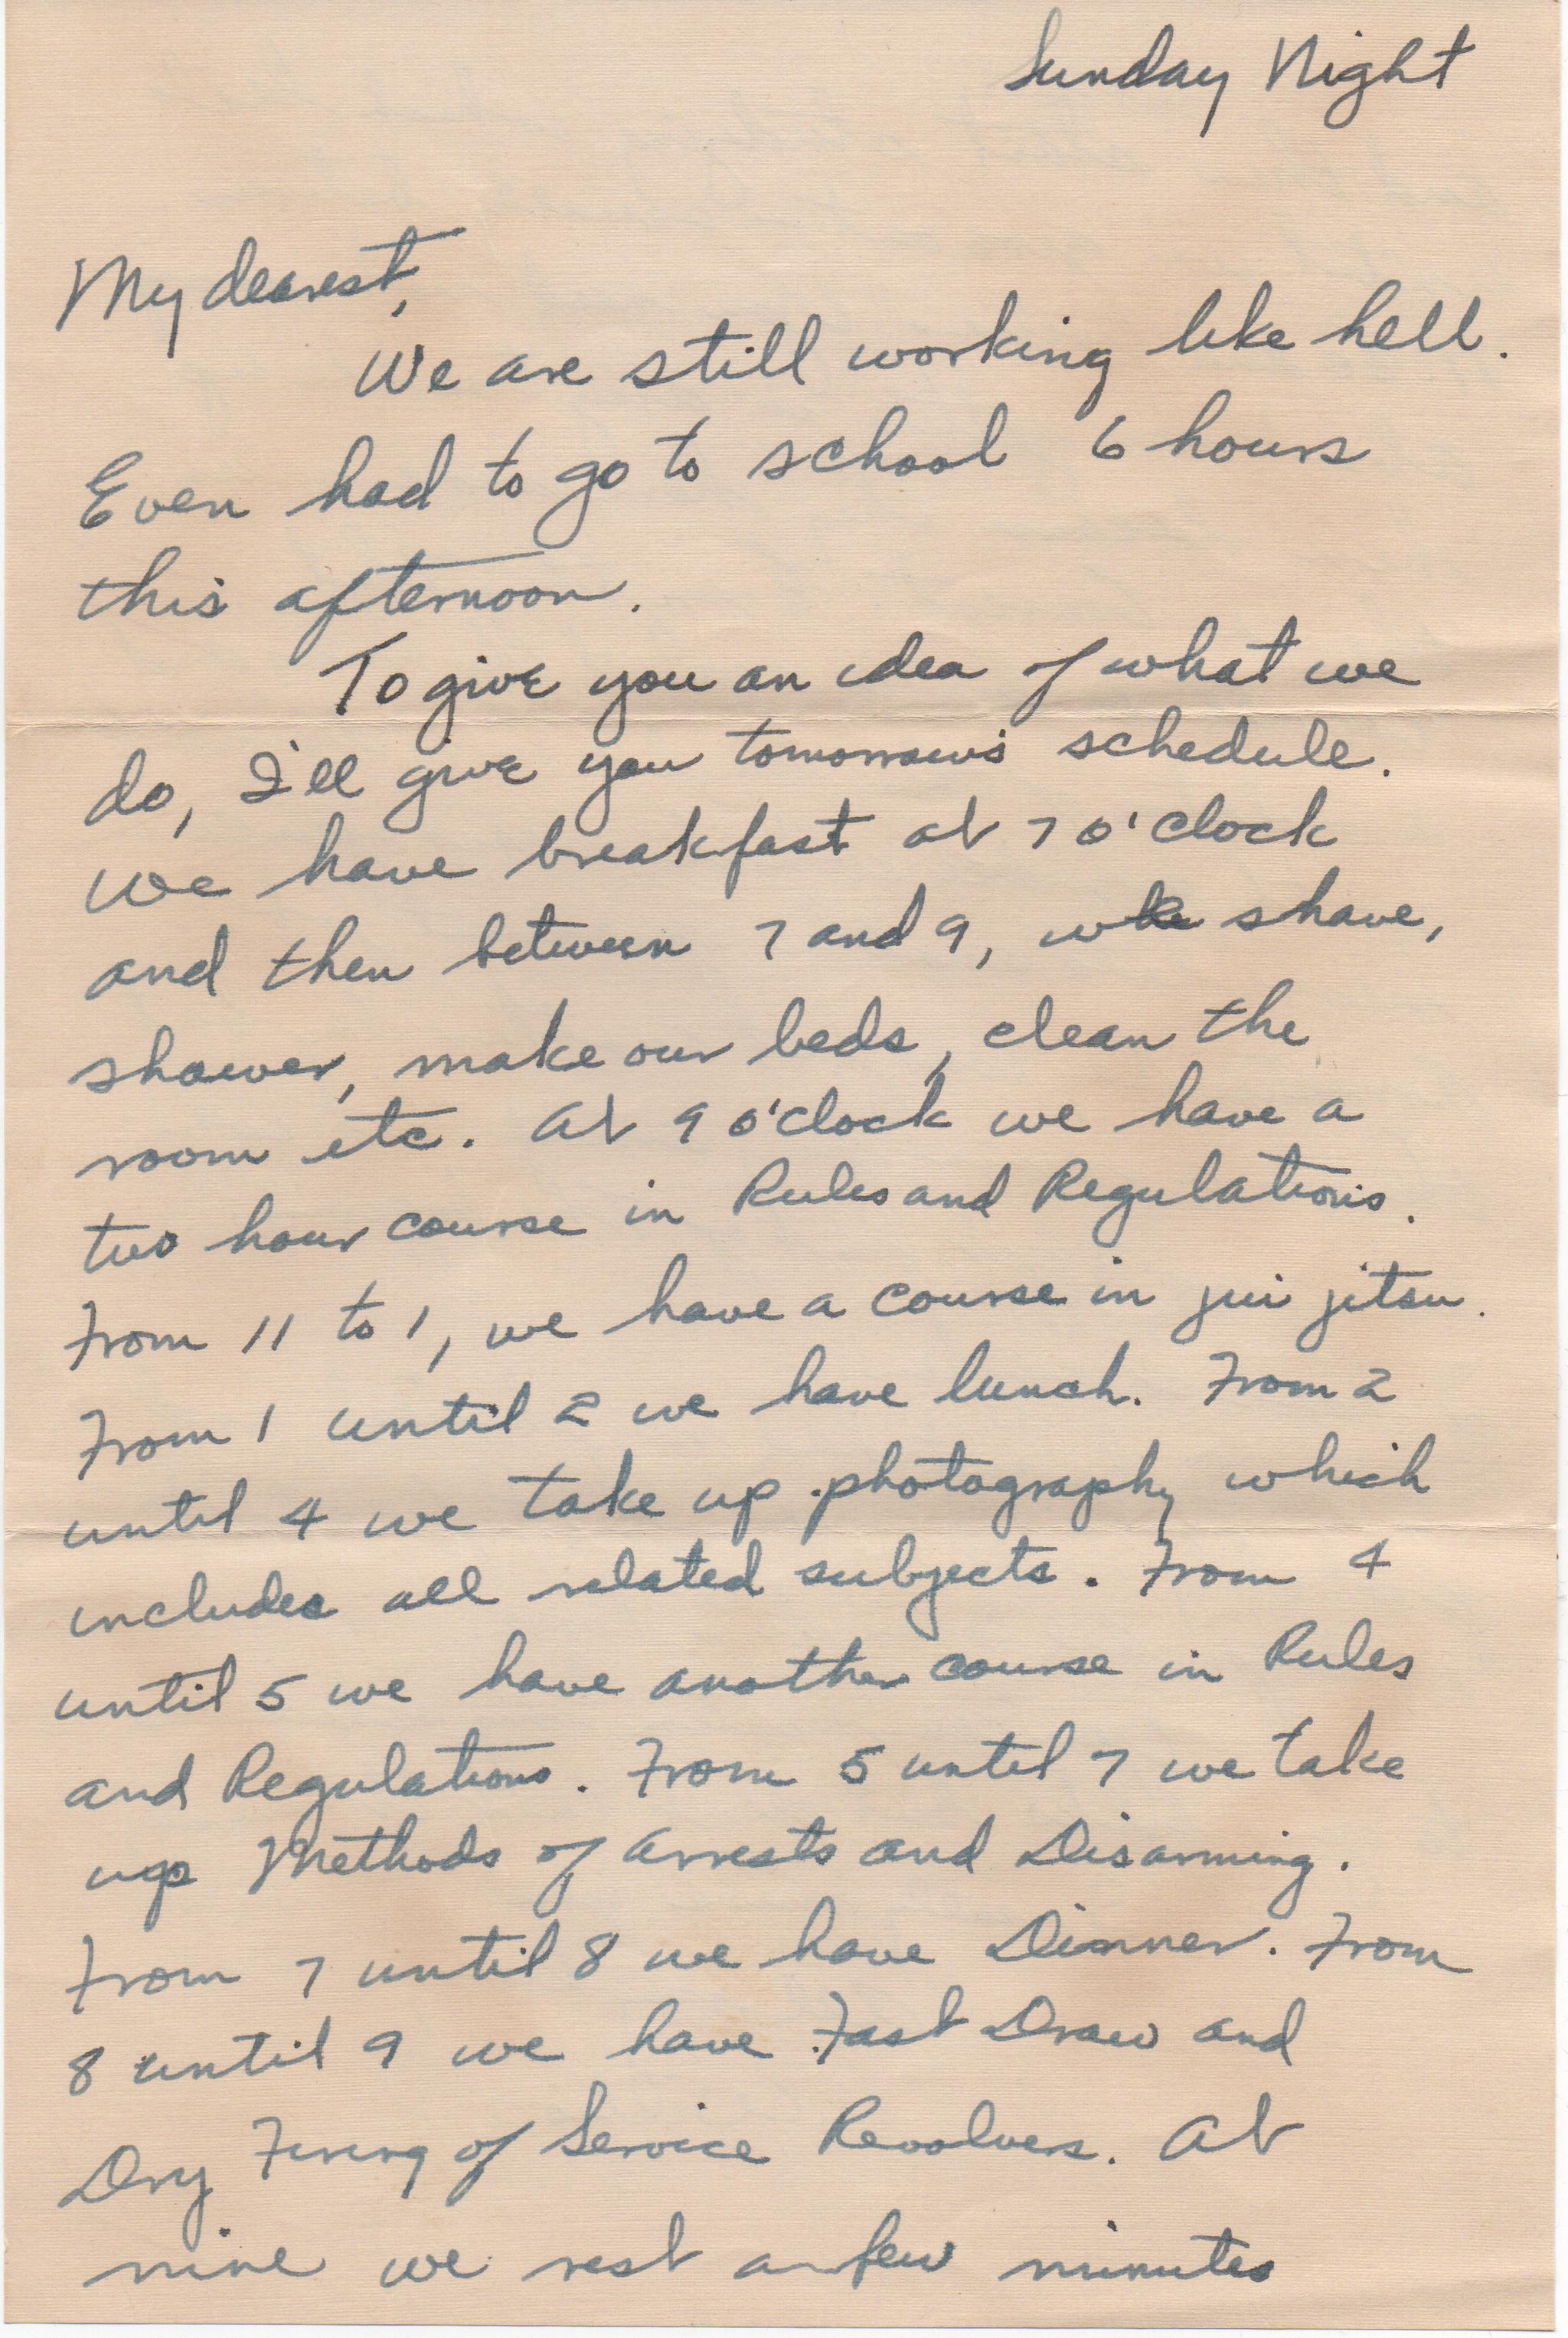 Sunday Night
My dearest,
We are still working like hell.
Even had to go to school 6 hours
this afternoon.
To give you an idea of what we
do, I'll give you tomorrow's schedule.
We have breakfast at 7 o'clock
and then between 7 and 9, we shave,
shower, make our beds, clean the
room etc. At 9 o'clock we have a
two hour course in Rules and Regulations.
From 11 to 1, we have a course in jui jitsu.
From 1 until 2 we have lunch. From 2
until 4 we take up photography which
includes all related subjects. From 4
until 5 we have another course in Rules
and Regulations. From 5 until 7 we take
up Methods of Arrests and Disarming.
From 7 until 8 we have Dinner. From
8 until 9 we have Fast Draw and
Dry Firing of Service Revolvers. At
nine we rest a few minutes